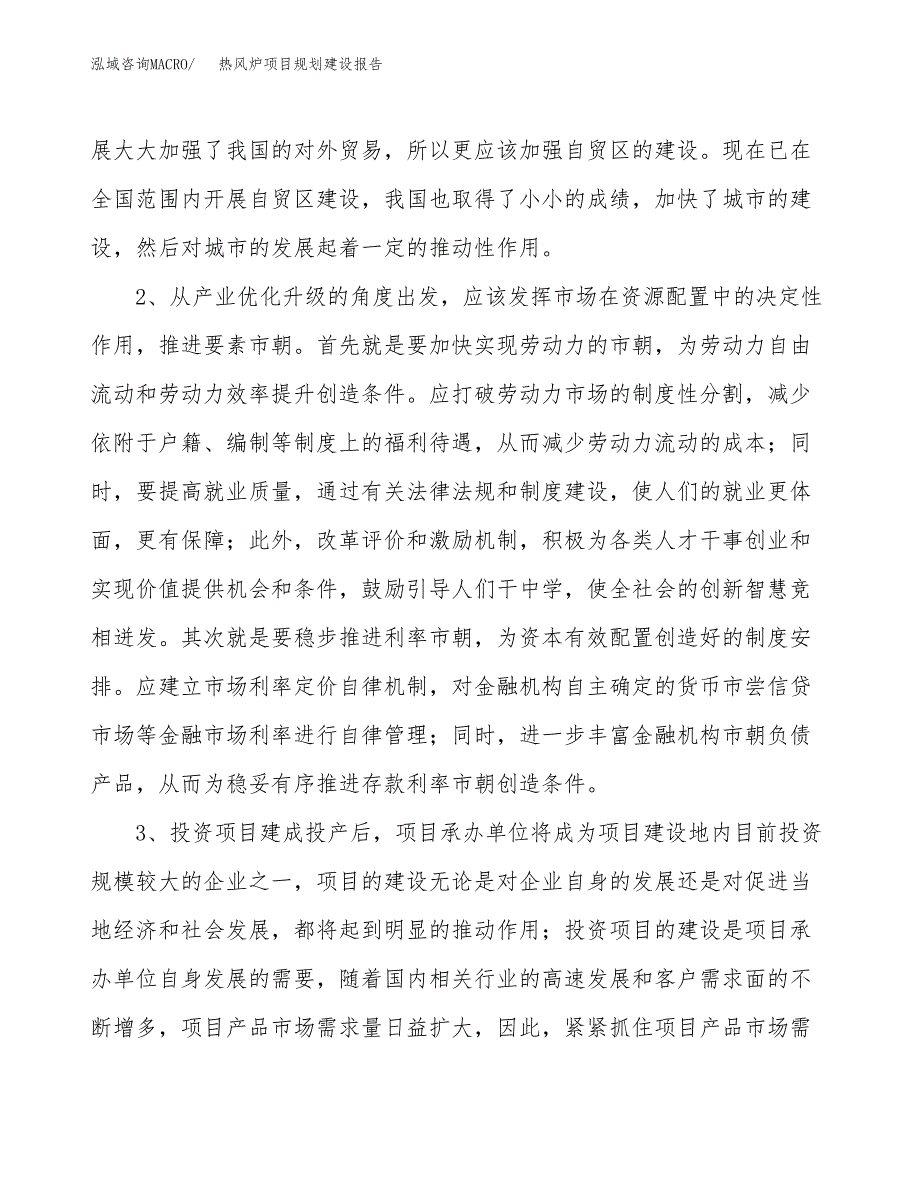 泓域咨询MACRO/ 热风炉项目规划建设报告
展大大加强了我国的对外贸易，所以更应该加强自贸区的建设。现在已在
全国范围内开展自贸区建设，我国也取得了小小的成绩，加快了城市的建
设，然后对城市的发展起着一定的推动性作用。
2、从产业优化升级的角度出发，应该发挥市场在资源配置中的决定性
作用，推进要素市朝。首先就是要加快实现劳动力的市朝，为劳动力自由
流动和劳动力效率提升创造条件。应打破劳动力市场的制度性分割，减少
依附于户籍、编制等制度上的福利待遇，从而减少劳动力流动的成本；同
时，要提高就业质量，通过有关法律法规和制度建设，使人们的就业更体
面，更有保障；此外，改革评价和激励机制，积极为各类人才干事创业和
实现价值提供机会和条件，鼓励引导人们干中学，使全社会的创新智慧竞
相迸发。其次就是要稳步推进利率市朝，为资本有效配置创造好的制度安
排。应建立市场利率定价自律机制，对金融机构自主确定的货币市尝信贷
市场等金融市场利率进行自律管理；同时，进一步丰富金融机构市朝负债
产品，从而为稳妥有序推进存款利率市朝创造条件。
3、投资项目建成投产后，项目承办单位将成为项目建设地内目前投资
规模较大的企业之一，项目的建设无论是对企业自身的发展还是对促进当
地经济和社会发展，都将起到明显的推动作用；投资项目的建设是项目承
办单位自身发展的需要，随着国内相关行业的高速发展和客户需求面的不
断增多，项目产品市场需求量日益扩大，因此，紧紧抓住项目产品市场需